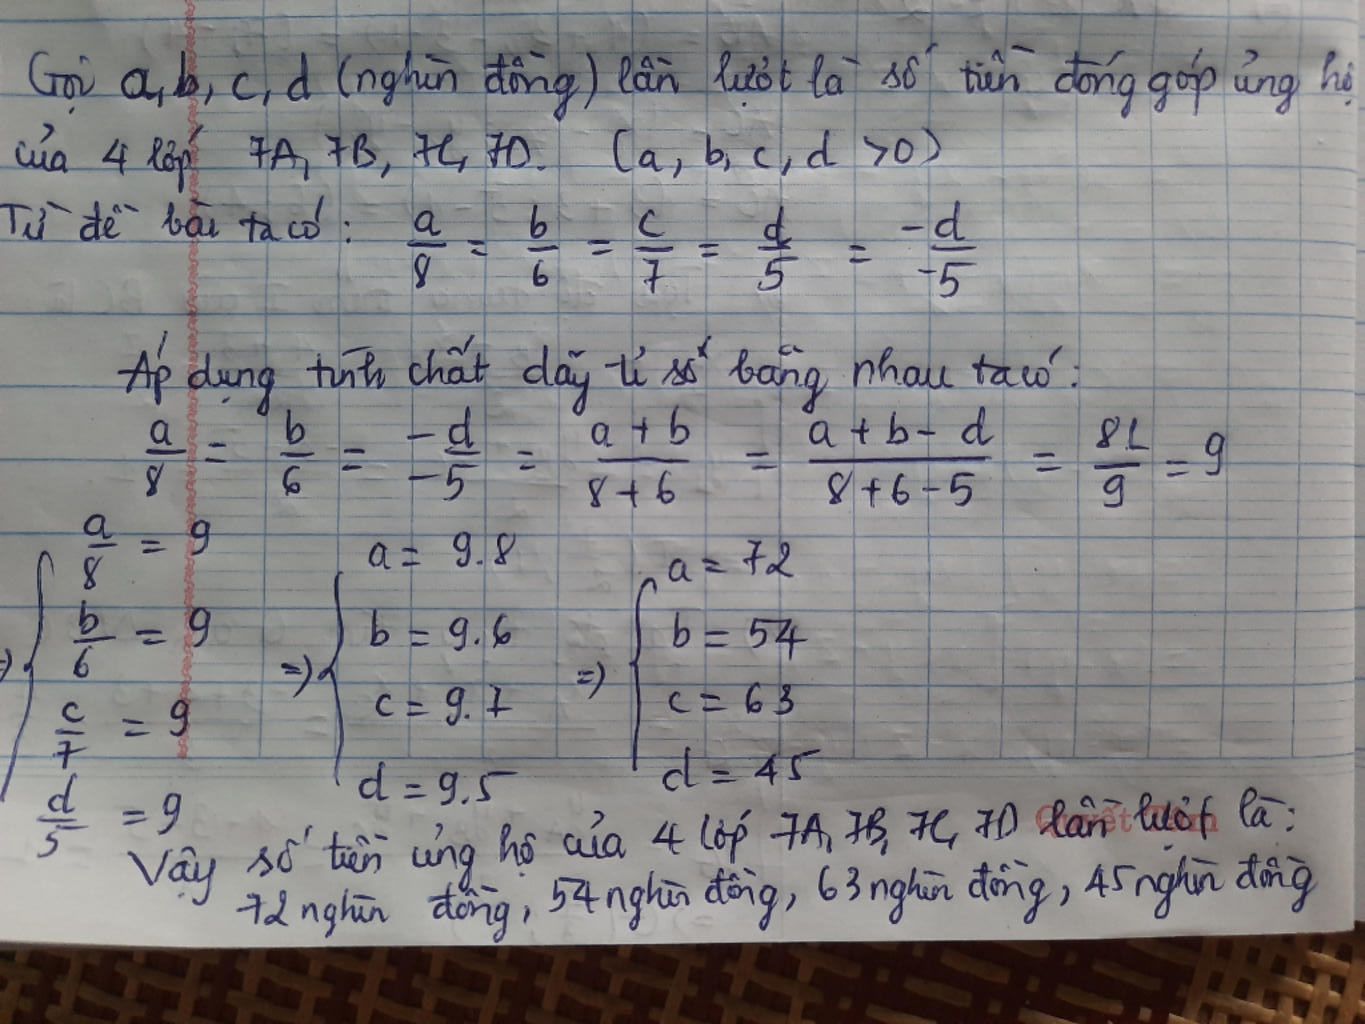 Gọi a, b, c, d (nghìn đồng) lần lượt là số tiền đóng góp ủng hộ
của 4 lớp 7A, 7B, 7C, 7D. (a, b, c, d >0)
Từ đề bài ta có: a/8 = b/6 = c/7 = d/5 = -d/-5
Áp dụng tính chất dãy tỉ số bằng nhau ta có:
a/8 = b/6 = -d/-5 = a + b/8 + 6 = a + b - d/8 + 6 - 5 = 81/9 = 9
=> { a/8 = 9 => { a = 9.8 => { a = 72
b/6 = 9 b = 9.6 b = 54
c/7 = 9 c = 9.7 c = 63
d/5 = 9 d = 9.5 d = 45
Vậy số tiền ủng hộ của 4 lớp 7A, 7B, 7C, 7D lần lượt là:
72 nghìn đồng, 54 nghìn đồng, 63 nghìn đồng, 45 nghìn đồng